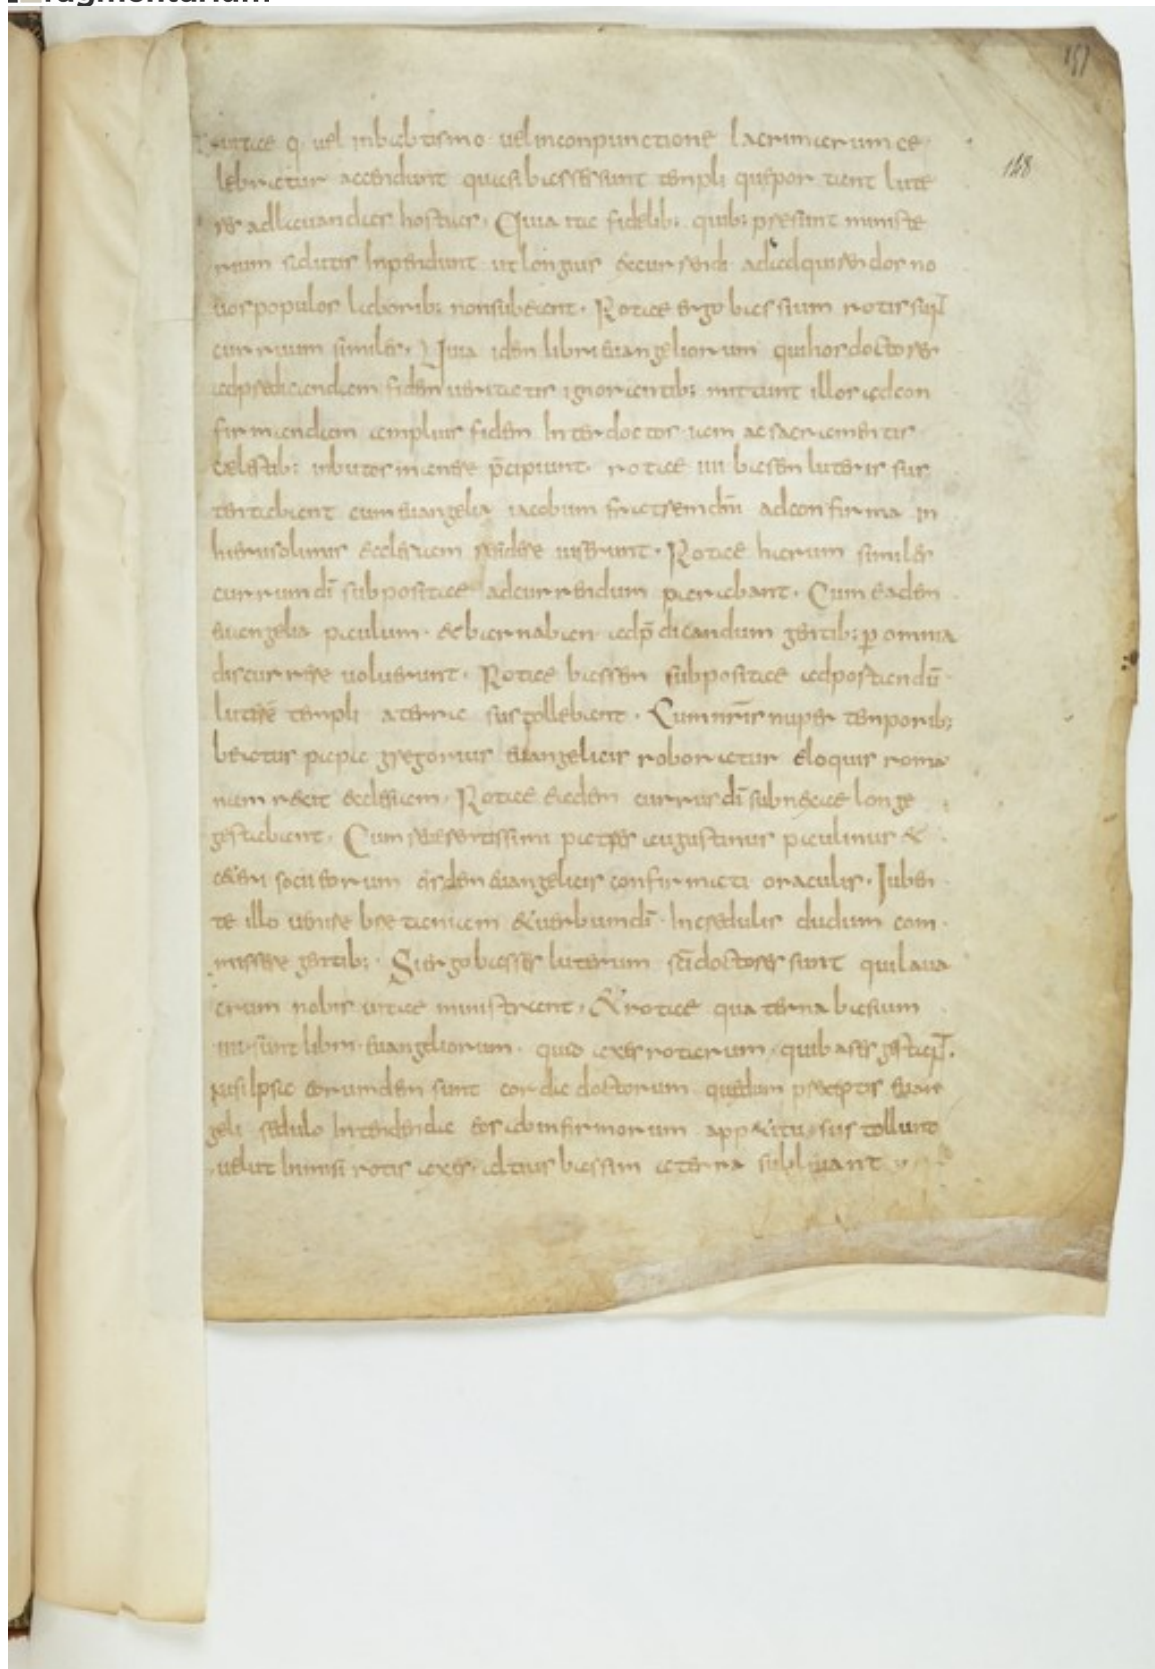 ragmentarium
148
uel inbabtismo uel inconpunctione lacrimarum ce
lebratur accendunt quasi basses sunt templi que portent lute
res ad lauandas hostias. Quia nc fidelib; quib; presunt ministe
rium salutis Inpendunt ut longius & currendi ad adquirendos no
uos populos laborib; non subeant. Rotae ergo bassium rotis sunt
curruum similes. Quia idem libri euangeliorum qui hos doctores
ad predicandam fidem ueritatis ignorantib; mittunt illos ad con
firmandam amplius fidem Inter doctos iam ac sacramentis
caelestib; inbutos manere p̄cipiunt. rotae IIII basem luteris sus
tentabant cum euangelia iacobum fratrem dn̄i ad confirma in
hierusolimis ecclesiam sedere iusserunt. Rotae hierum similes
currum dī subpositae ad currendum parabant. Cum eadem
euangelia paulum. & barnaban ad p̄dicandum gentib; p omnia
discurrere uoluerunt. Rotae bassem subpositae ad portandū
luterē templi a terra sustollebant. Cum nr̄is nuper temporib;
beatus papa gregorius euangelicis roboratur eloquis roma
nam rexit ecclesiam. Rotae eaedem currus dī subnexae longe
gestabant. Cum reuerentissimi patres augustinus paulinus &
ceteri socii eorum eisdem euangelicis confirmati oraculis. Iuben
te illo uenire brettaniam & uerbum dī Incredulis dudum com
missere gentib;. Si ergo basses luterum sc̄i doctores sunt qui laua
crum nobis uitae ministrant. & rotae quaterna basium
IIII sunt libri euangeliorum. quid axes rotarum quib
nisi Ipsa eorumdem sunt corda doctorum quedam preceptis euan
geli sedulo Intendenda eos ab infirmorum app&itu sustollunt
uelut Inmisi rotis axes altius bassim a terra subleuant